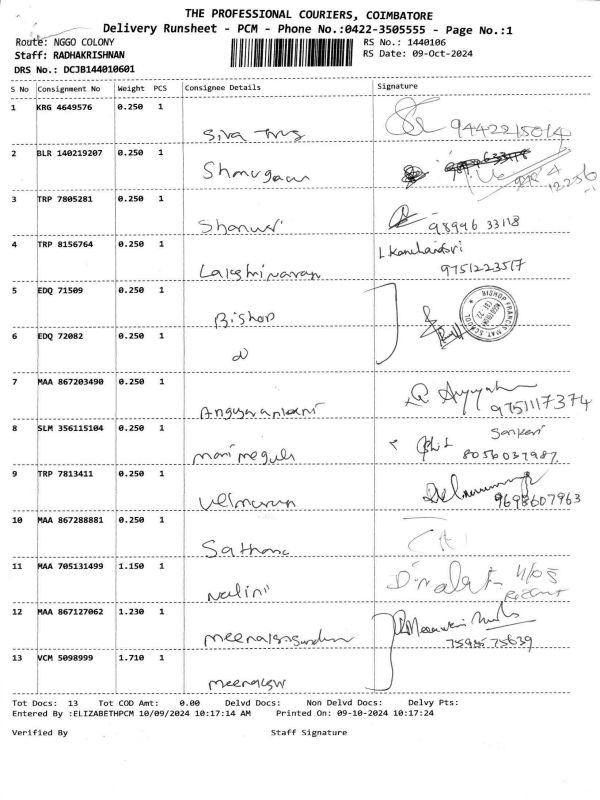 THE PROFESSIONAL COURIERS, COIMBATORE
Delivery Runsheet - PCM - Phone No.:0422-3505555 - Page No.:1
Route: NGGO COLONY RS No.: 1440106
Staff: RADHAKRISHNAN RS Date: 09-Oct-2024
DRS No.: DCJB144010601
S No Consignment No Weight PCS Consignee Details Signature
1 KRG 4649576 0.250 1
Siva Tms 9442215014
2 BLR 140219207 0.250 1
Shanugam
12256
3 TRP 7805281 0.250 1
98946 33118
4 TRP 8156764 0.250 1
Lakshminarayan 9751223517
5 EDQ 71509 0.250 1
Bishop
BISHOP FRANCK MAT. SCHOOL
6 EDQ 72082 0.250 1
7 MAA 867203490 0.250 1
9751117374
8 SLM 356115104 0.250 1
Sankari
8056037987
9 TRP 7813411 0.250 1
Velmurun 9698607963
10 MAA 867288881 0.250 1
Sathana
11 MAA 705131499 1.150 1
Nalini
12 MAA 867127062 1.230 1
75639
13 VCM 5098999 1.710 1
Tot Docs: 13 Tot COD Amt: 0.00 Delvd Docs: Non Delvd Docs: Delvy Pts:
Entered By :ELIZABETHPCM 10/09/2024 10:17:14 AM Printed On: 09-10-2024 10:17:24
Verified By Staff Signature